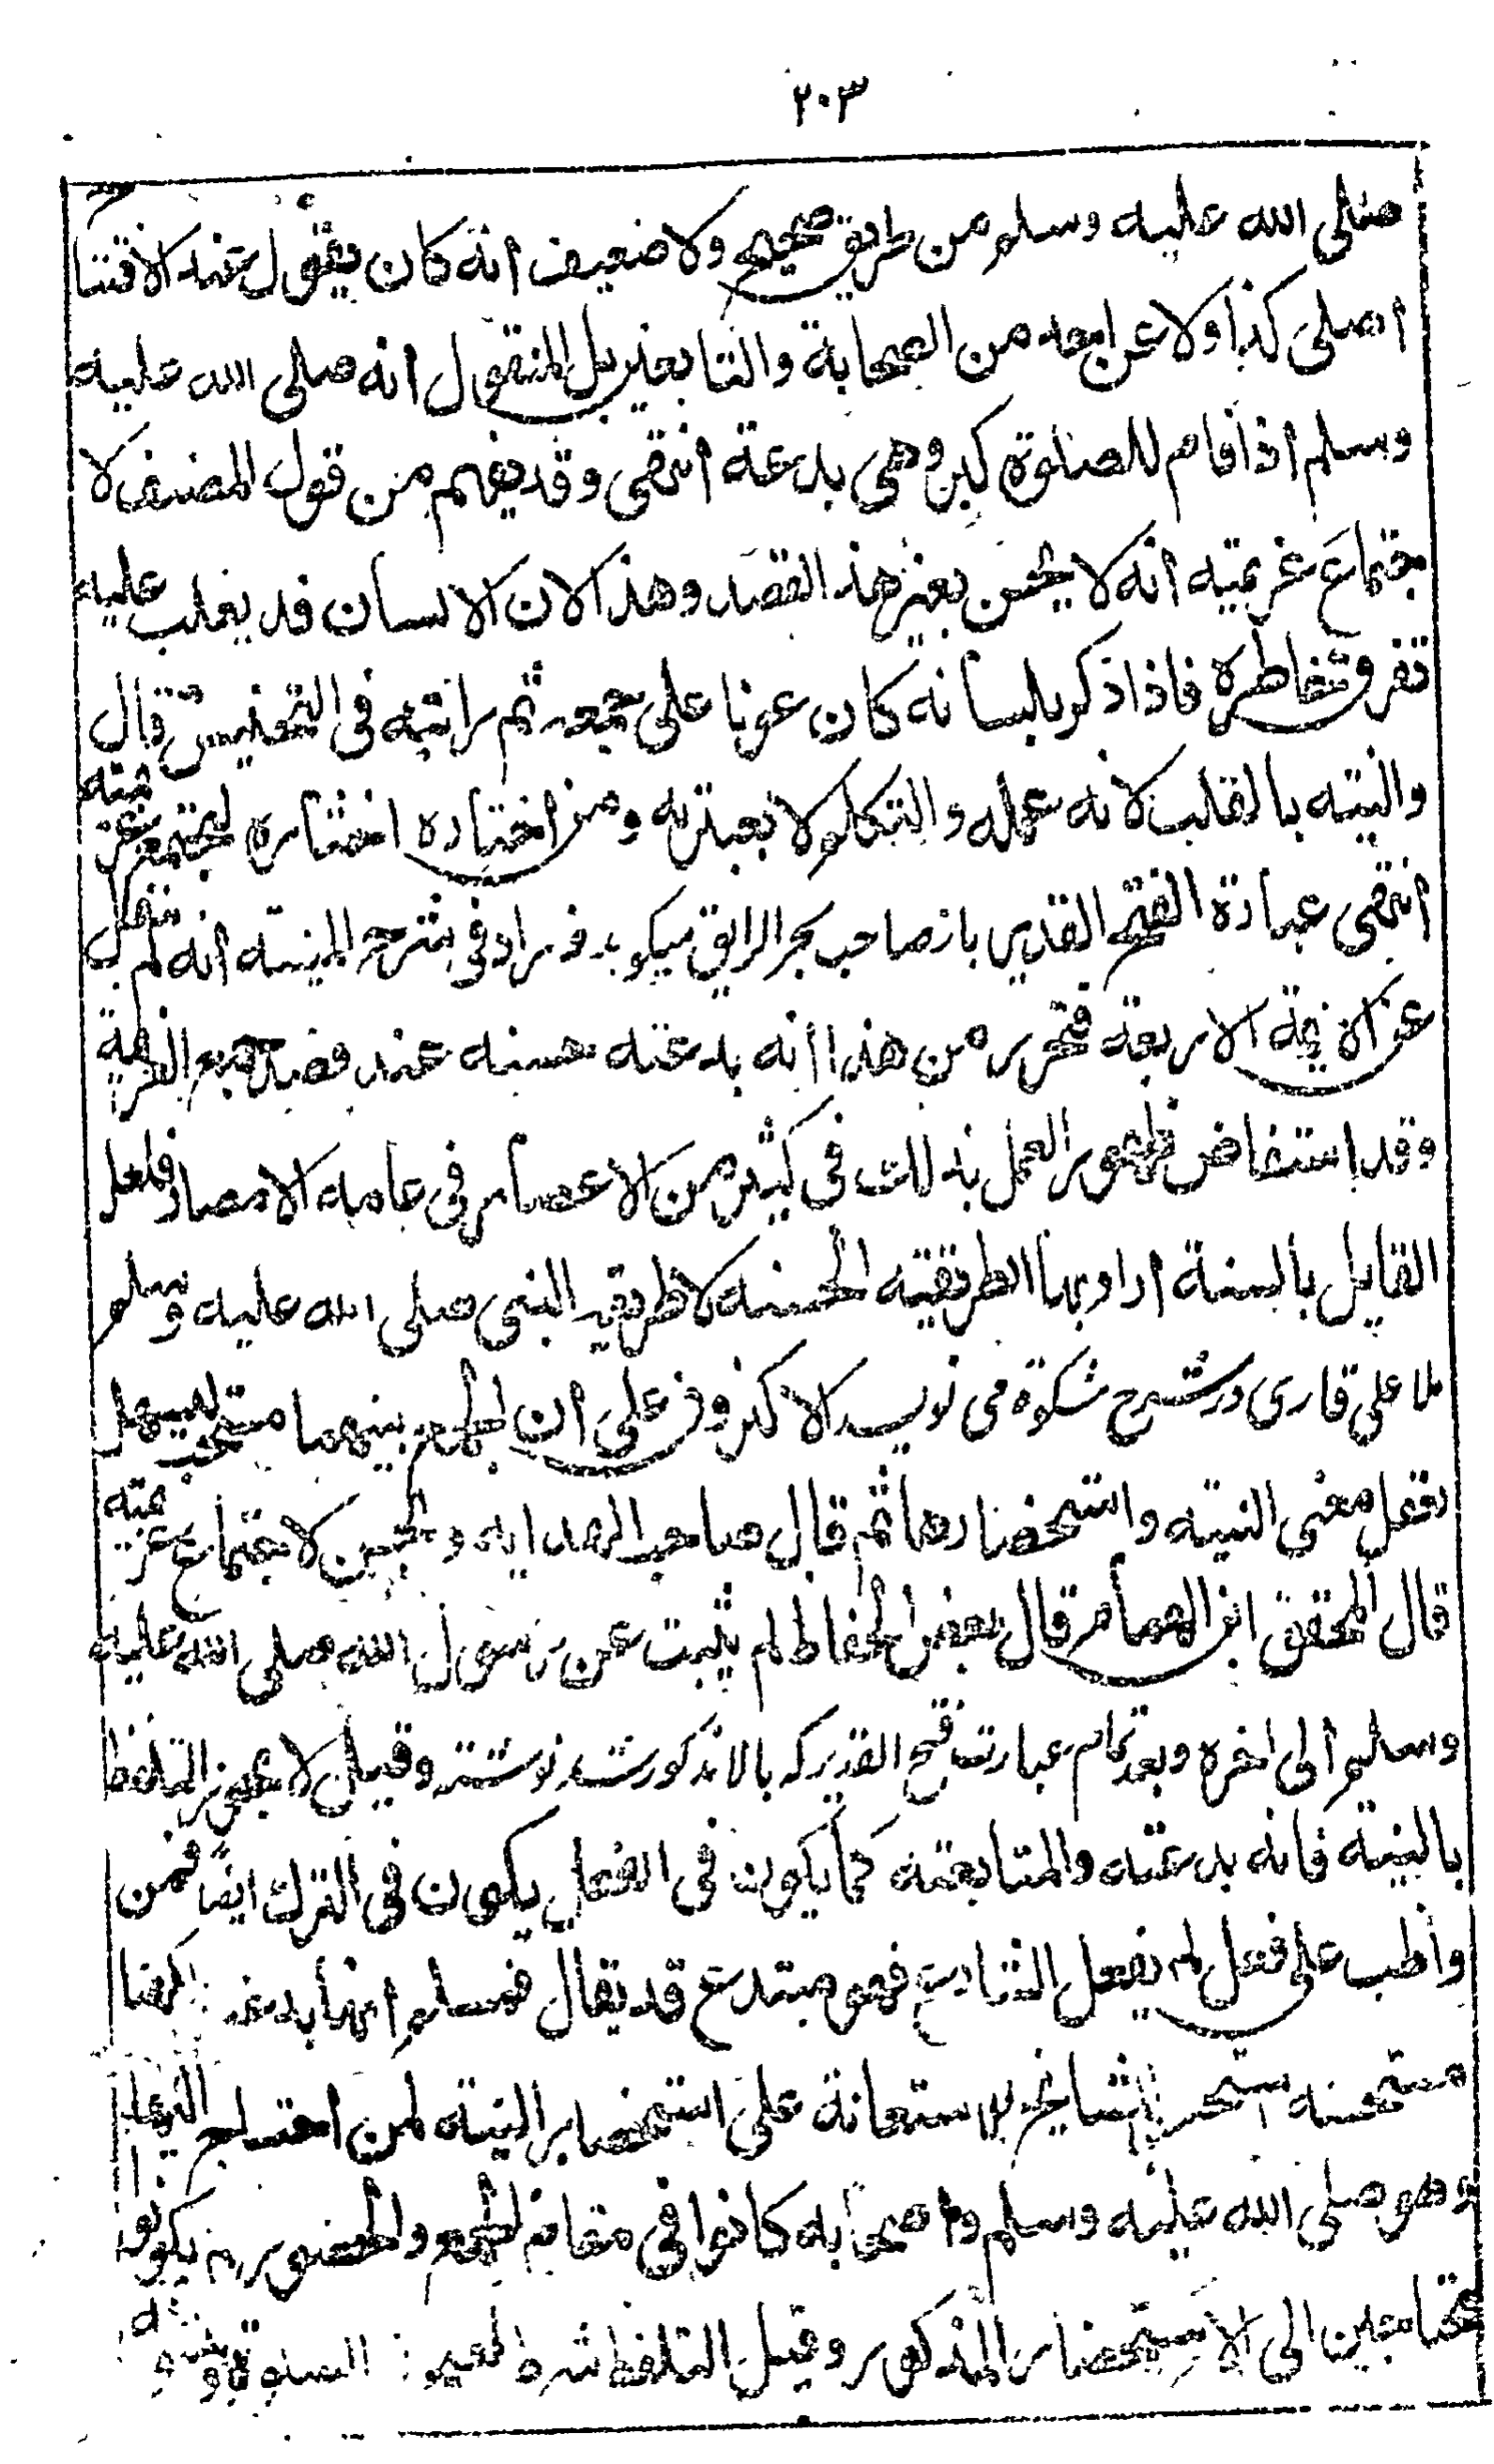 ۲۰۳
صلى الله عليه وسلم من طريق صحيح ولا ضعيف انه كان يقول عند الافتتاح
اصلى كذا ولا عن احد من الصحابة والتابعين بل المنقول انه صلى الله عليه
وسلم اذا قام للصلوة كبر وهى بدعة انتهى وقد يفهم من قول المصنف لا
جتماع عزيمته انه لا يحسن بغير هذ القصد وهذ الان الانسان قد يغلب عليه
تفرق خاطره فاذا ذكر بلسانه كان عونا على جمعه ثم رأيته فى التجنيس قال
والنيته بالقلب لانه عمله والتكلم لا يعتبر به ومن اختاره اختاره ليجتمع عزيمته
انتهى عبارة الفتح القدير باز صاحب بحر الرايق ميكويد و زاد فى شرح المنيه انه لم ينقل
عن الائمة الاربعة فتحرر من هذا انه بدعته حسنه عند قصد جمع العزيمة
وقد استفاض ظهور العمل بذلك فى كثير من الاعصار فى عامه الامصار فلعل
القايل بالسنة اراد بها الطريقته الحسنه لا طريقه النبى صلى الله عليه وسلم
ملا على قارى در شرح مشكوة مى نويسد الاكثرون على ان الجمع بينهما مستحب ليسهل
تعقل معنى النيته واستحضارها ثم قال صاحب الهدايه ويحسن لاجتماع عزيمته
قال المحقق ابن الهمام قال بعض الحفاظ لم يثبت عن رسول الله صلى الله عليه
وسلم الى اخره وبعد تمام عبارت فتح القدير كه بالا مذكور شد نوشته وقيل لا يجوز التلفظ
بالنيته فانه بدعته والمتابعته كما يكون فى الفعل يكون فى الترك ايضاً فمن
واظب على فعل لم يفعل الشارع فهو مبتدع قد يقال نسلم انها بدعة لكنها
مستحسنه استحسنها المشايخ للاستعانة على استحضار النية لمن احتاج اليها
وهو صلى الله عليه وسلم واصحابه كانوا فى مقام الجمع والحضور لم يكونوا
محتاجين الى الاستحضار المذكور وقيل التلفظ شرط لصحة الصلوة